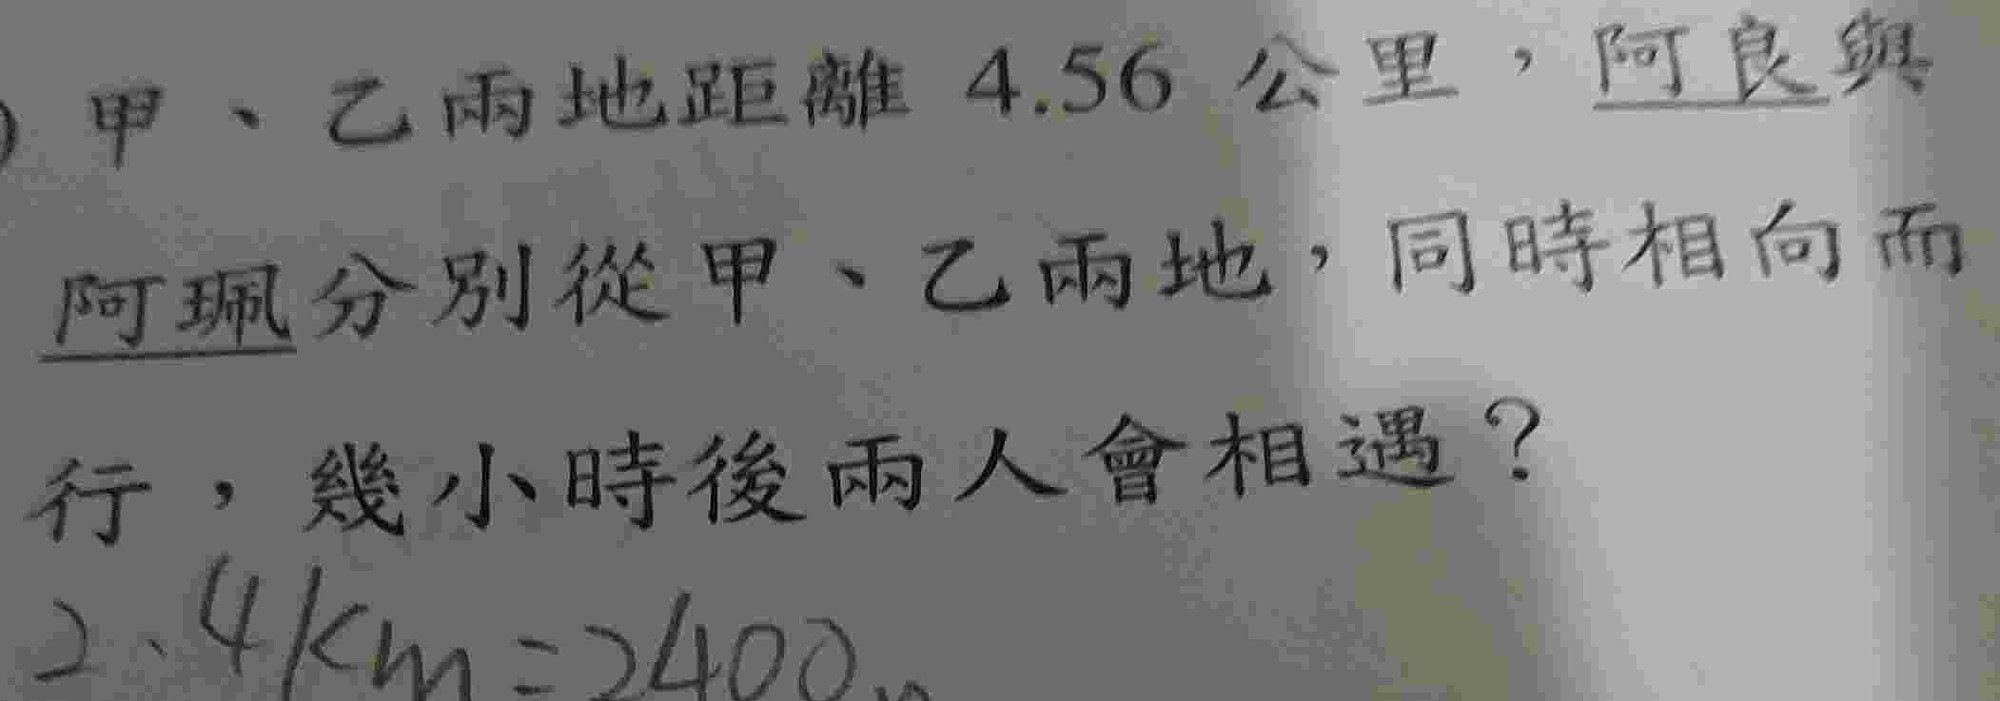 ) 甲、乙兩地距離 4.56 公里，阿良與
阿珮分別從甲、乙兩地，同時相向而
行，幾小時後兩人會相遇？
2.4km=2400m